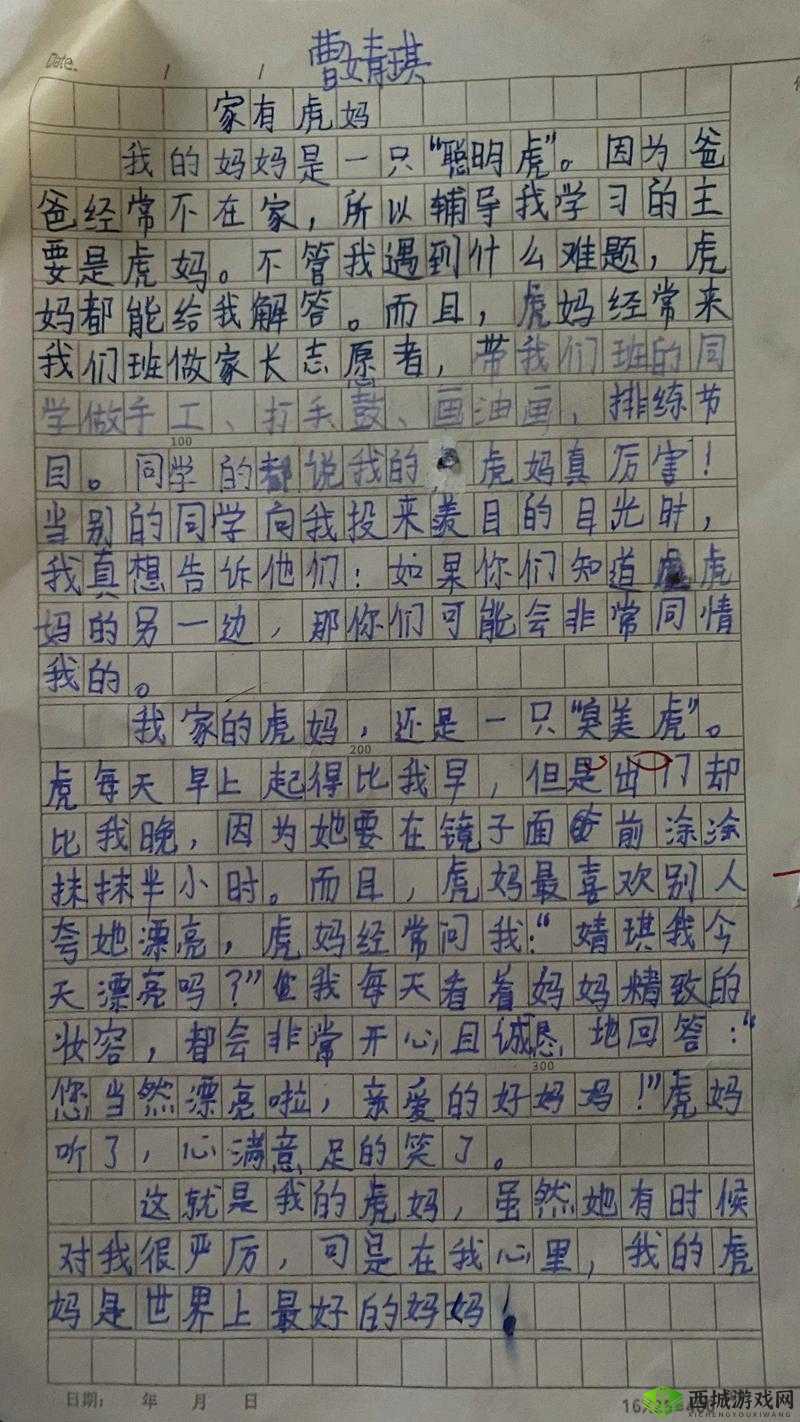 Date.
曹婧琪
家有虎妈
我的妈妈是一只“聪明虎”。因为爸
爸经常不在家，所以辅导我学习的主
要是虎妈。不管我遇到什么难题，虎
妈都能给我解答。而且，虎妈经常来
我们班做家长志愿者，带我们班的同
学做手工、打手鼓、画油画，排练节
100
目。同学的都说我的虎妈真厉害！
当别的同学向我投来羡目的目光时，
我真想告诉他们：如果你们知道虎
妈的另一边，那你们可能会非常同情
我的。
我家的虎妈，还是一只“臭美虎”。
200
虎每天早上起得比我早，但是出门却
比我晚，因为她要在镜子面前涂涂
抹抹半小时。而且，虎妈最喜欢别人
夸她漂亮，虎妈经常问我：“婧琪我今
天漂亮吗？”我每天看着妈妈精致的
妆容，都会非常开心且诚恳地回答：“
300
您当然漂亮啦，亲爱的好妈妈！”虎妈
听了，心满意足的笑了。
这就是我的虎妈，虽然她有时候
对我很严厉，可是在我心里，我的虎
妈是世界上最好的妈妈！
日期： 年 月 日
西城游戏网
XICHENGYOUXIWANG